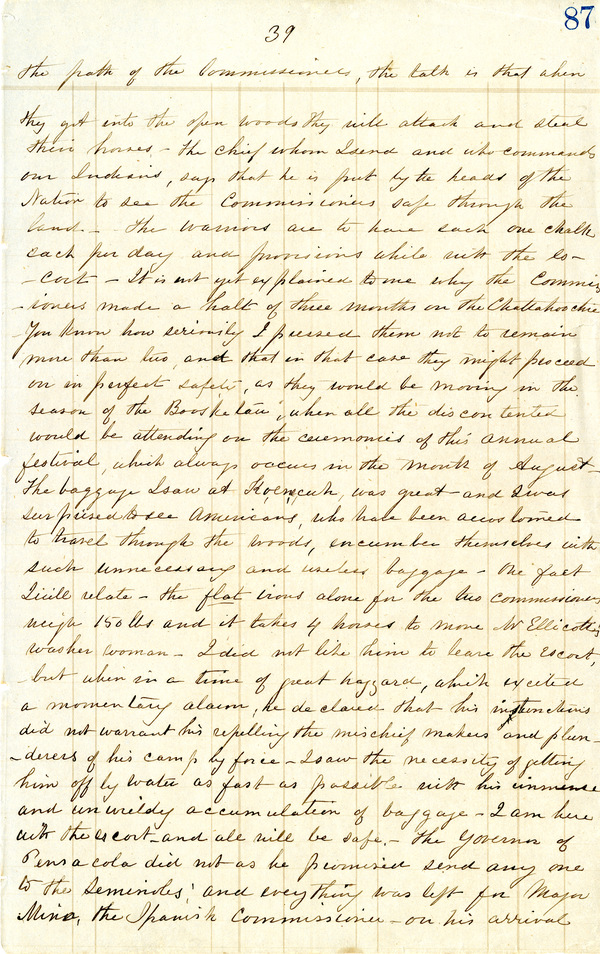 87
39
the path of the Commissioners, the talk is that when
they get into the open woods they will attack and steal
their horses - the chief whom I send and who commands
our Indians, says that he is put by the heads of the
Nation to see the Commissioners safe through the
land - the warriors are to have each one chalk
each per day and provisions while with the es-
-cort - It is not yet explained to me why the Commis
-ioners made a halt of three months on the Chattahoochie
You know how seriously I pressed them not to remain
more than two, and that in that case they might proceed
on in perfect safety, as they would be moving in the
season of the Boosketau, when all the discontented
would be attending on the ceremonies of this annual
festival, which always occurs in the month of August -
The baggage I saw at Koenecuh, was great - and I was
surprised to see Americans, who have been accustomed
to travel through the woods, encumber themselves with
such unnecessary and useless baggage - One fact
I will relate - the flat irons alone for the two commissioners
weigh 150 lbs and it takes 4 horses to move Mr Ellicotts
washer woman - I did not like him to leave the Escort,
but when in a time of great hazzard, which excited
a momentary alarm, he declared that his instructions
did not warrant his repelling the mischief makers and plun-
-derers of his camp by force - I saw the necessity of getting
him off by water as fast as possible with his immense
and unwieldy accumulation of baggage - I am here
with the escort - and all will be safe. - The Governor of
Pensacola did not as he promised send any one
to the Seminoles; and everything was left for Major
Minor, the Spanish Commissioner - on his arrival